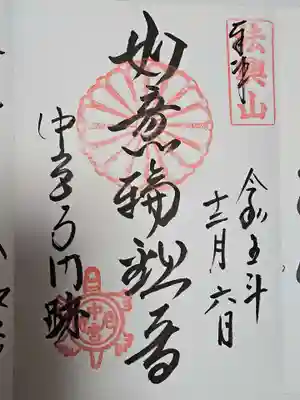 奉拝
法興山
令和五年
十二月六日
如意輪観音
中宮寺門跡